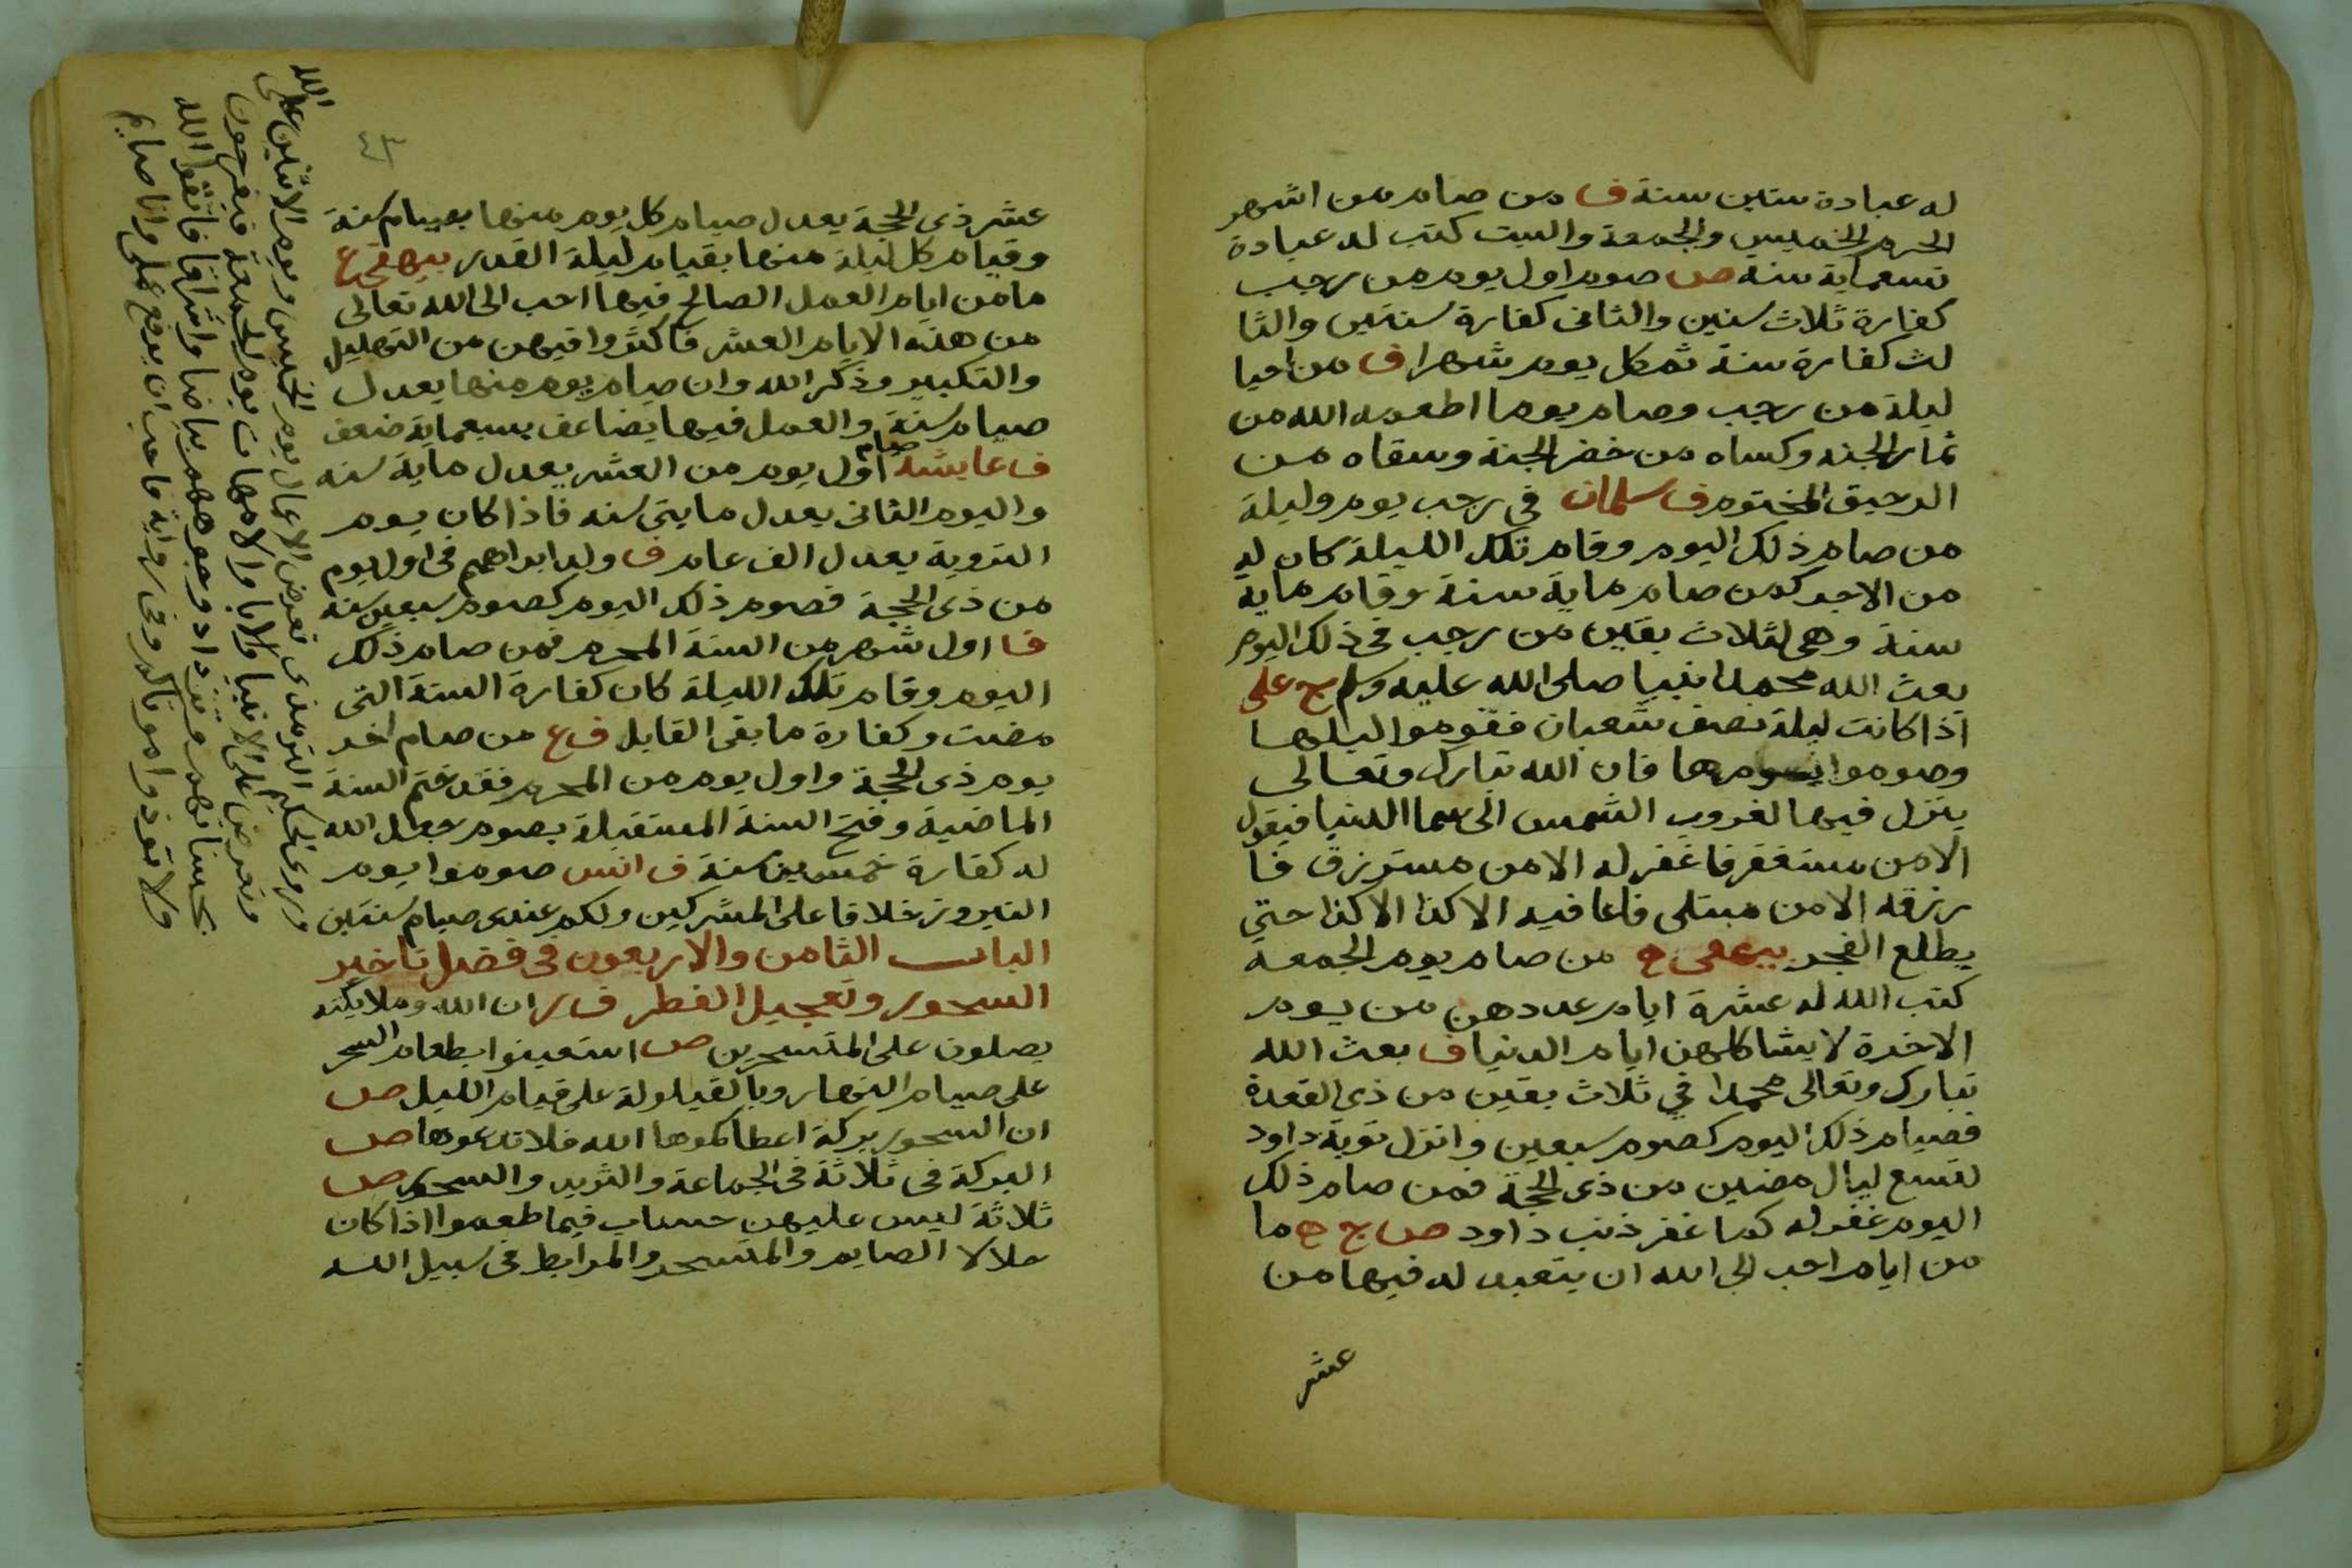 له عبادة ستين سنة ف من صام من اشهر
الحرم الخميس والجمعة والسبت كتب له عبادة
تسعماية سنه ص صوم اول يوم من رجب
كفارة ثلاث سنين والثانى كفارة سنتين والثا
لث كفارة سنة ثم كل يوم شهرا ف من احيا
ليلة من رجب وصام يوما اطعمه الله من
ثمار الجنه وكساه من خضر الجنة وسقاه من
الرحيق المختوم ف سلمان في رجب يوم وليلة
من صام ذلك اليوم وقام تلك الليلة كان له
من الاجر كمن صام ماية سنة وقام ماية
سنة وهى لثلاث بقين من رجب فى ذلك اليوم
بعث الله محمدا نبيا صلى الله عليه وسلم ج على
اذا كانت ليلة نصف شعبان فقوموا ليلها
وصوموا يومها فان الله تبارك وتعالى
ينزل فيها لغروب الشمس الى سما الدنيا فيقول
الا من مستغفر فاغفر له الا من مسترزق فا
رزقه الا من مبتلى فاعافيه الا كذا الا كذا حتى
يطلع الفجر من صام يوم الجمعة
كتب الله له عشرة ايام عددهن من يوم
الاخرة لا يشاكلهن ايام الدنيا ف بعث الله
تبارك وتعالى محمدا في ثلاث بقين من ذى القعدة
فصيام ذلك اليوم كصوم سبعين وانزل توبة داود
لتسع ليال مضين من ذى الحجة فمن صام ذلك
اليوم غفر له كما غفر ذنب داود ص ج ه ما
من ايام احب الى الله ان يتعبد له فيها من
عشر
٤٣
عشر ذى الحجة يعدل صيام كل يوم منها بصيام سنة
وقيام كل ليلة منها بقيام ليلة القدر بيهقى ع
ما من ايام العمل الصالح فيها احب الى الله تعالى
من هذه الايام العشر فاكثروا فيهن من التهليل
والتكبير وذكر الله وان صيام يوم منها يعدل
صيام سنة والعمل فيها يضاعف بسبعماية ضعف
ف عايشة صيام اول يوم من العشر يعدل ماية سنه
واليوم الثانى يعدل مايتى سنه فاذا كان يوم
التروية يعدل الف عام ف ولد ابراهيم فى اول يوم
من ذى الحجة فصوم ذلك اليوم كصوم سبعين سنه
فا اول شهر من السنة المحرم فمن صام ذلك
اليوم وقام تلك الليلة كان كفارة السنة التى
مضت وكفارة ما بقى القابل ف ع من صام اخر
يوم ذى الحجة واول يوم من المحرم فقد ختم السنة
الماضية وفتح السنة المستقبلة بصوم جعل الله
له كفارة خمسين سنة ف انس صوموا يوم
النيروز خلافا على المشركين ولكم عندى صيام سنتين
الباب الثامن والاربعون فى فضل تاخير
السحور وتعجيل الفطر ف ر ان الله وملايكته
يصلون على المتسحرين ص استعينوا بطعام السحر
على صيام النهار وبالقيلولة على قيام الليل ص
ان السحور بركة اعطاكموها الله فلا تدعوها ص
البركة فى ثلاثة فى الجماعة والثريد والسحور ص
ثلاثة ليس عليهن حساب فيما طعموا اذا كان
حلالا الصايم والمتسحر والمرابط فى سبيل الله
وروى الحكيم الترمذى تعرض الاعمال يوم الخميس ويوم الاثنين على
الله
وتعرض على الانبيا والابا والامهات يوم الجمعة فيفرحون
بحسناتهم وتزداد وجوههم بياضا واشراقا فاتقوا الله
ولا تؤذوا موتاكم وفى رواية فاحب ان يرفع عملى وانا صايم